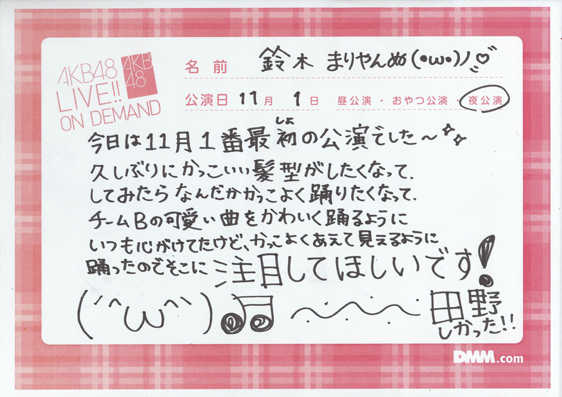 AKB48
LIVE!!
ON DEMAND
AKB
48
名前 鈴木 まりやんぬ(・ω・)ノ♡
公演日 11月 1日 昼公演・おやつ公演・夜公演
しょ
今日は11月1番最初の公演でした〜
久しぶりにかっこいい髪型がしたくなって、
してみたらなんだかかっこよく踊りたくなって、
チームBの可愛い曲をかわいく踊るように
いつも心がけてたけど、かっこよくあえて見えるように
踊ったのでそこに注目してほしいです!
(´^ω^`)♫ 〜〜〜 田野
しかった!!
DMM.com